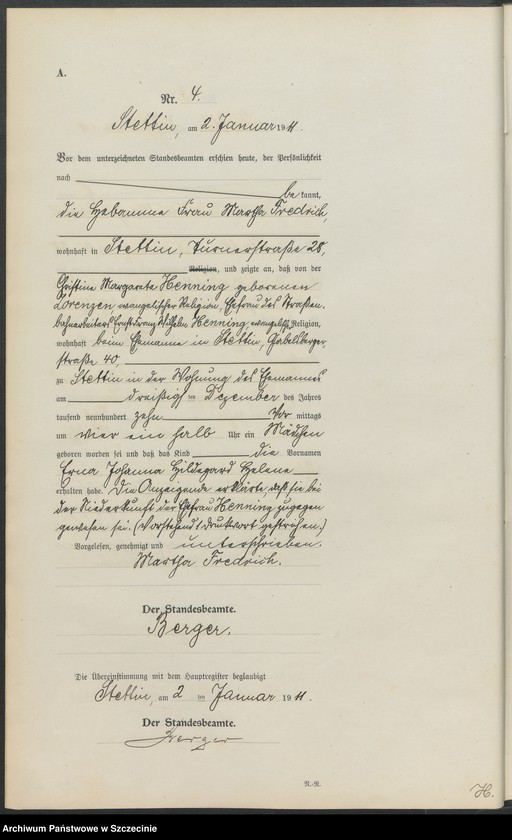 A.
Nr. 4.
Stettin, am 2. Januar 1911.
Vor dem unterzeichneten Standesbeamten erschien heute, der Persönlichkeit
nach be kannt,
die Hebamme Frau Martha Fredrich,
wohnhaft in Stettin, Turnerstraße 28,
Religion, und zeigte an, daß von der
Christine Margarete Henning geborenen
Lorenzen evangelischer Religion, Ehefrau des Straßen-
bahnarbeiters Ernst Franz Wilhelm Henning, evangelisch Religion,
wohnhaft beim Ehemanne in Stettin, Gabelsberger-
straße 40,
zu Stettin in der Wohnung des Ehemannes
am dreißigsten Dezember des Jahres
tausend neunhundert zehn Vor mittags
um vier ein halb Uhr ein Mädchen
geboren worden sei und daß das Kind die Vornamen
Erna Johanna Hildegard Helene
erhalten habe. Die Anzeigende erklärte, daß sie bei
der Niederkunft der Ehefrau Henning zugegen
gewesen sei. (Vorstehend 1 Druckwort gestrichen.)
Vorgelesen, genehmigt und unterschrieben.
Martha Fredrich.
Der Standesbeamte.
Berger.
Die Übereinstimmung mit dem Hauptregister beglaubigt
Stettin, am 2 ten Januar 1911.
Der Standesbeamte.
Berger
N.-R.
H.
Archiwum Państwowe w Szczecinie